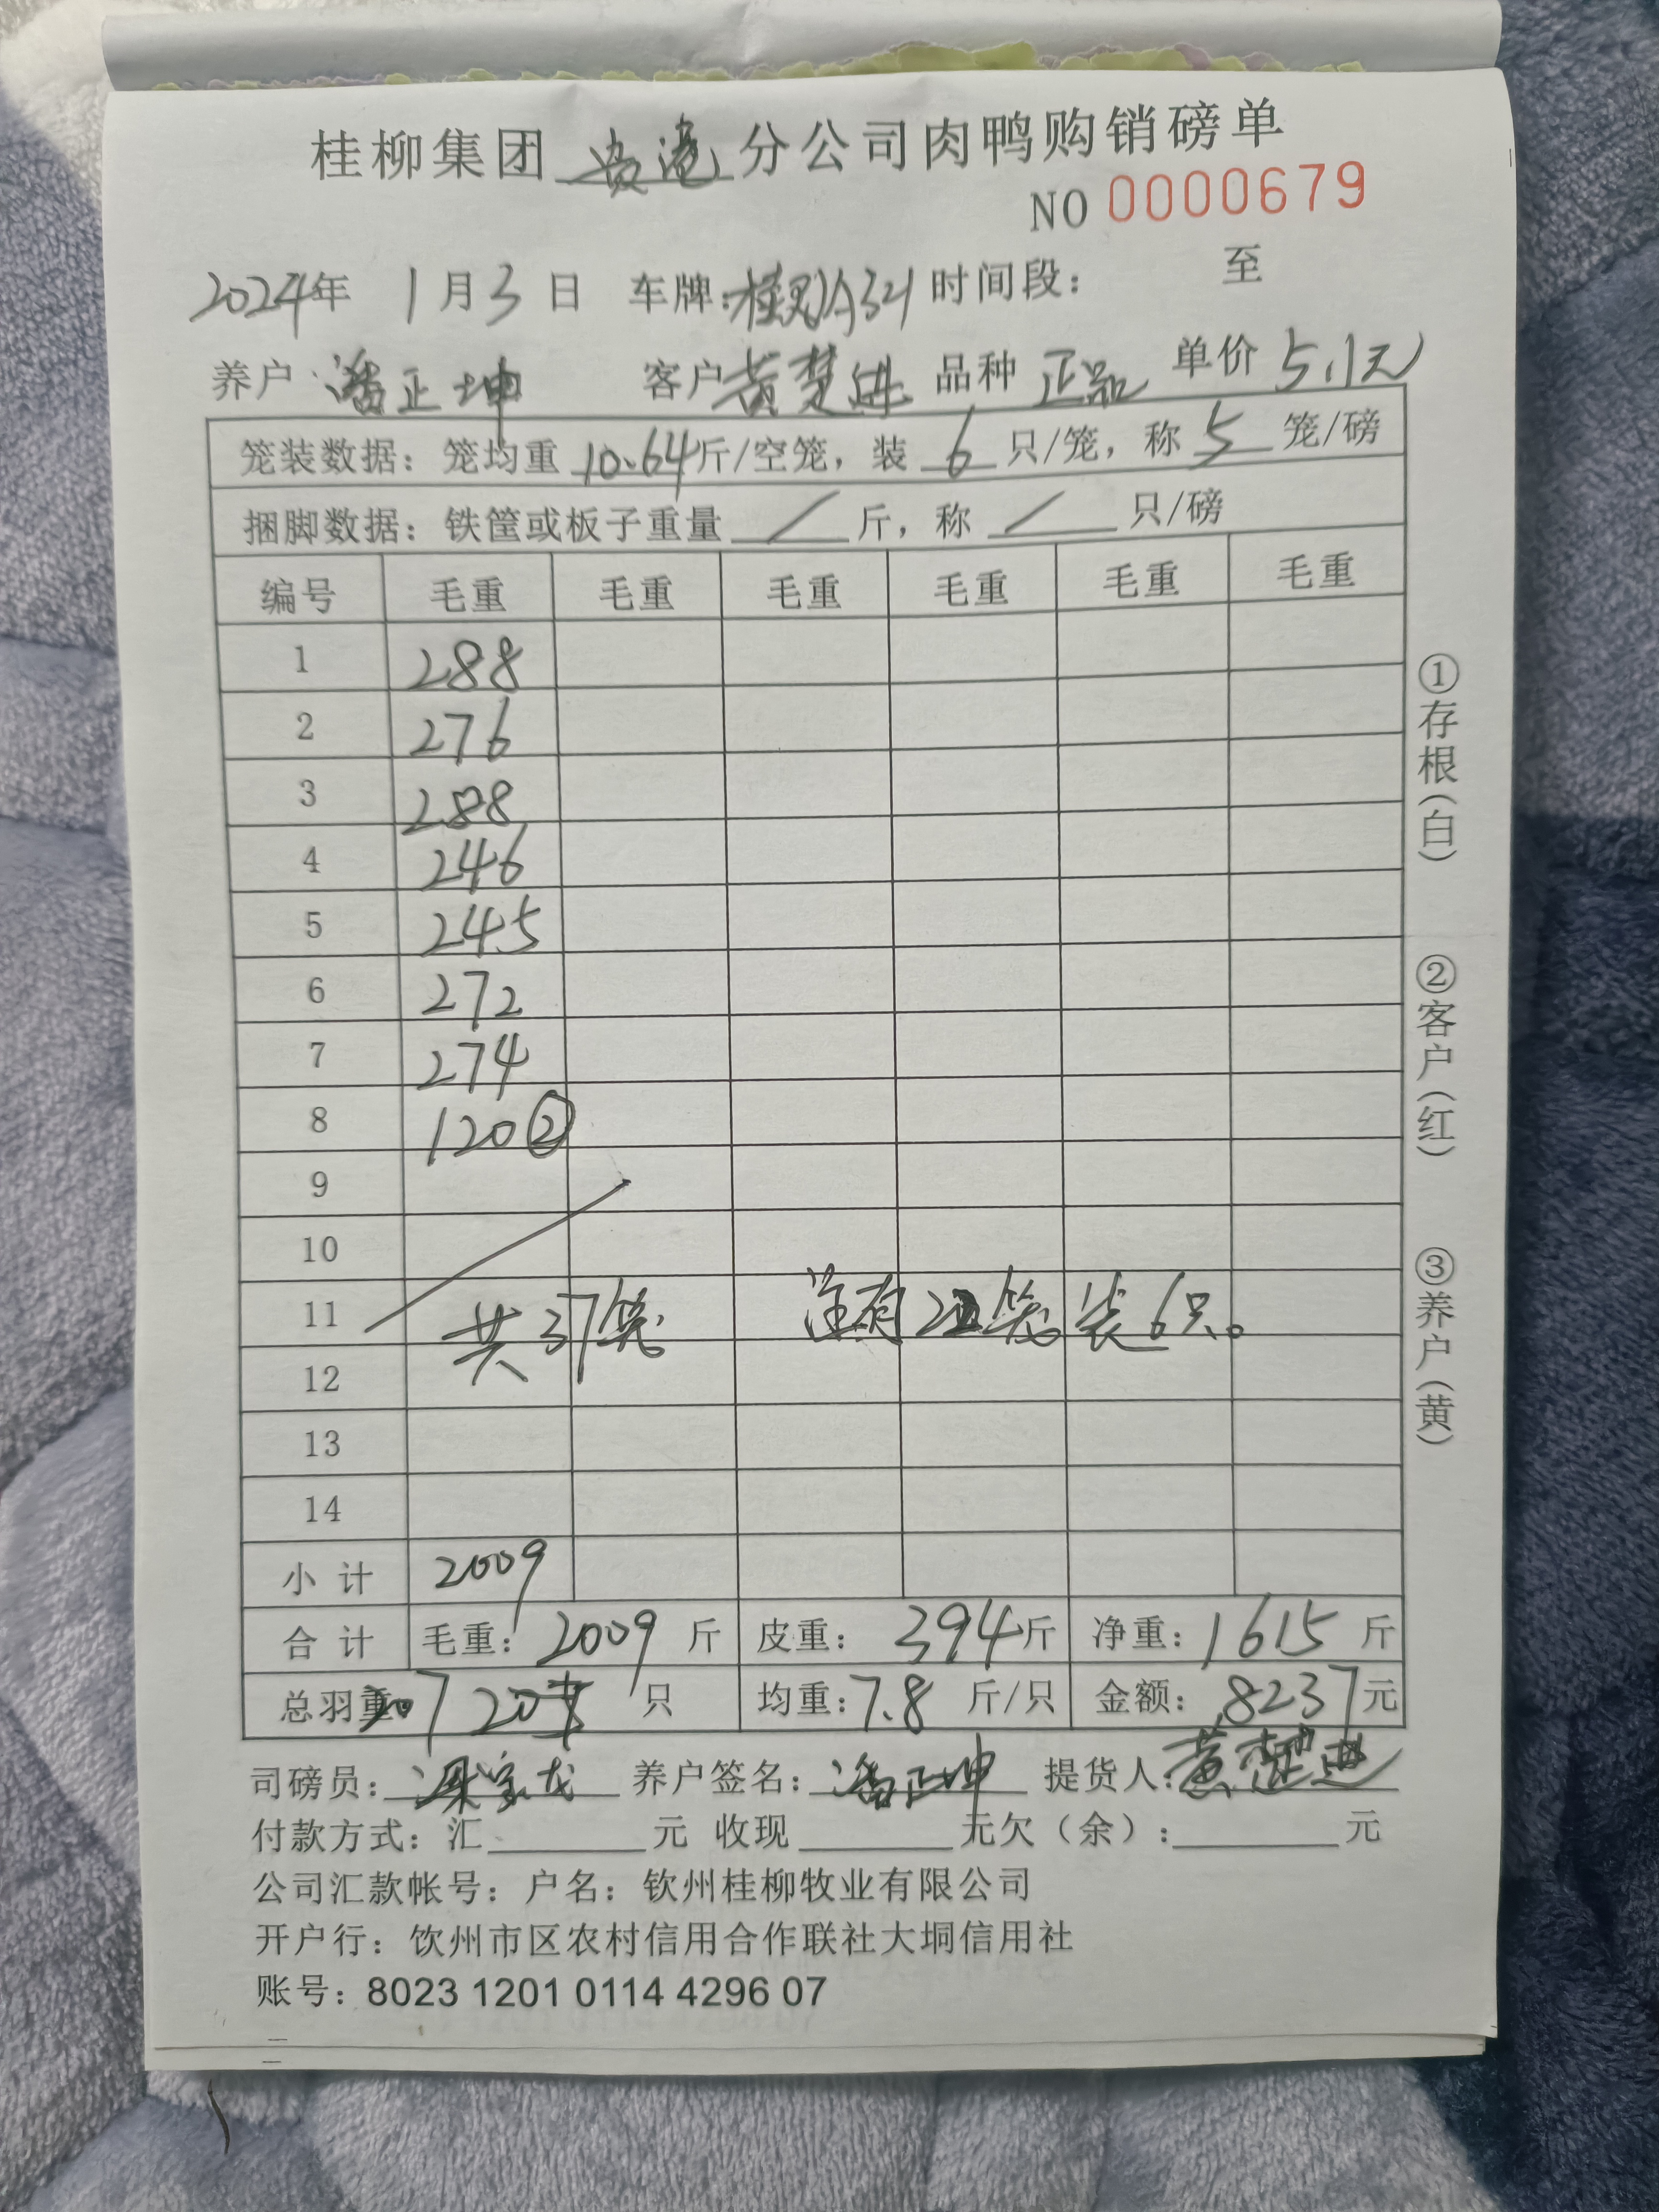 桂柳集团 贵港 分公司肉鸭购销磅单
NO 0000679
2024年 1月3日 车牌: 时间段: 至
养户 潘正坤 客户 黄楚进 品种 正品 单价 5.1元
笼装数据: 笼均重 10.64斤/空笼, 装 6 只/笼, 称 5 笼/磅
捆脚数据: 铁筐或板子重量 / 斤, 称 / 只/磅
编号 毛重 毛重 毛重 毛重 毛重 毛重
1 288
2 276
3 288
4 246
5 245
6 272
7 274
8 120②
9
10
11 共37笼 注有 笼装6只。
12
13
14
小计 2009
合计 毛重: 2009 斤 皮重: 394斤 净重: 1615 斤
总羽重 207 只 均重: 7.8 斤/只 金额: 8237元
司磅员: 梁宝龙 养户签名: 潘正坤 提货人: 黄楚进
付款方式: 汇 元 收现 元欠(余): 元
公司汇款帐号: 户名: 钦州桂柳牧业有限公司
开户行: 饮州市区农村信用合作联社大垌信用社
账号: 8023 1201 0114 4296 07
①存根(白)
②客户(红)
③养户(黄)